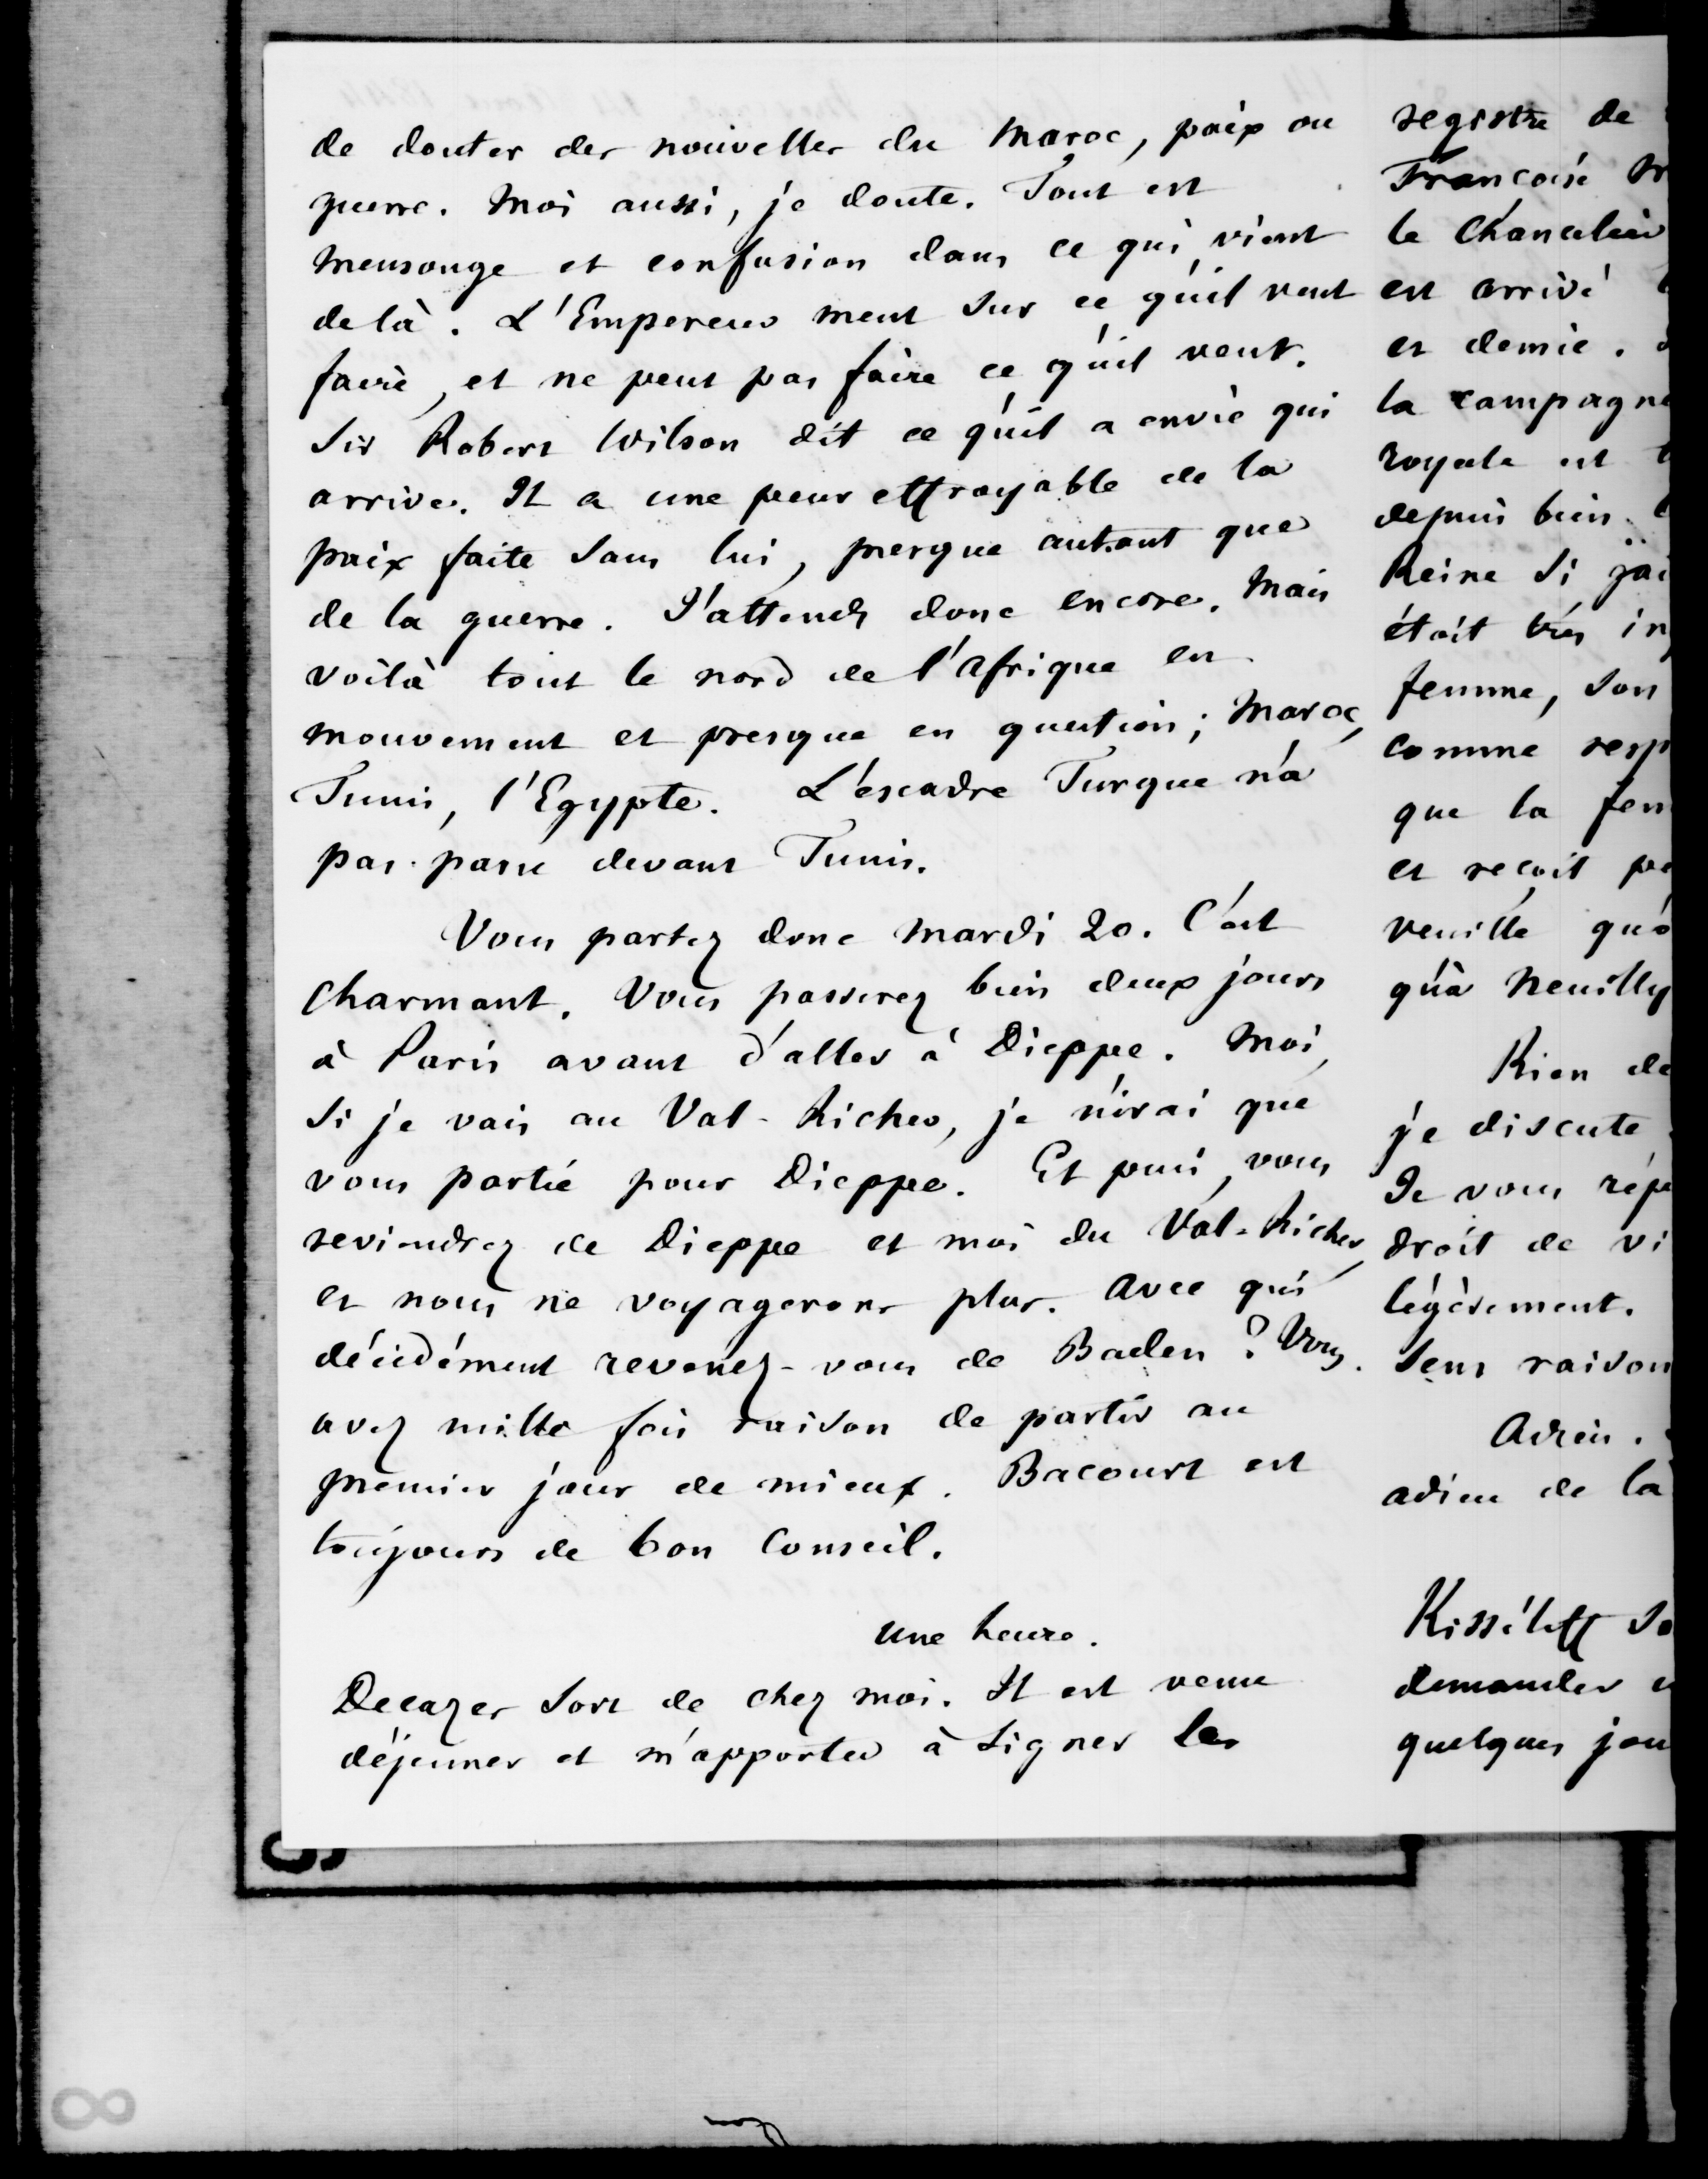 de douter des nouvelles du Maroc, paix ou
guerre. Moi aussi, je doute. Tout est
mensonge et confusion dans ce qui vient
de là. L'Empereur ment sur ce qu'il veut
faire, et ne peut pas faire ce qu'il veut.
Sir Robert Wilson dit ce qu'il a envie qui
arrive. Il a une peur effroyable de la
paix faite sans lui, presque autant que
de la guerre. J'attends donc encore. Mais
voilà tout le nord de l'Afrique en
mouvement et presque en question ; Maroc,
Tunis, l'Egypte. L'escadre Turque n'a
pas passé devant Tunis.
Vous partez donc mardi 20. C'est
charmant. Vous passerez bien deux jours
à Paris avant d'aller à Dieppe. Moi,
si je vais au Val-Richer, je n'irai que
vous partie pour Dieppe. Et puis, vous
reviendrez de Dieppe et moi du Val-Richer,
et nous ne voyagerons plus. Avec qui
décidément revenez-vous de Baden ? Vous
avez mille fois raison de partir au
premier jour de mieux. Bacourt est
toujours de bon conseil.
une heure.
Decazes sort de chez moi. Il est venu
déjeuner et m'apporter à signer les
registre de
Françoise
le Chancelier
est arrivé
et demie.
la campagne
royale est
depuis bien
Reine si j'ai
était très
femme, son
comme
que la
et reçoit
veuille
qu'à Neuilly
Rien de
je discute
Je vous
droit de
légèrement.
sens raison
Adieu.
adieu de la
Kisséleff
demander
quelques